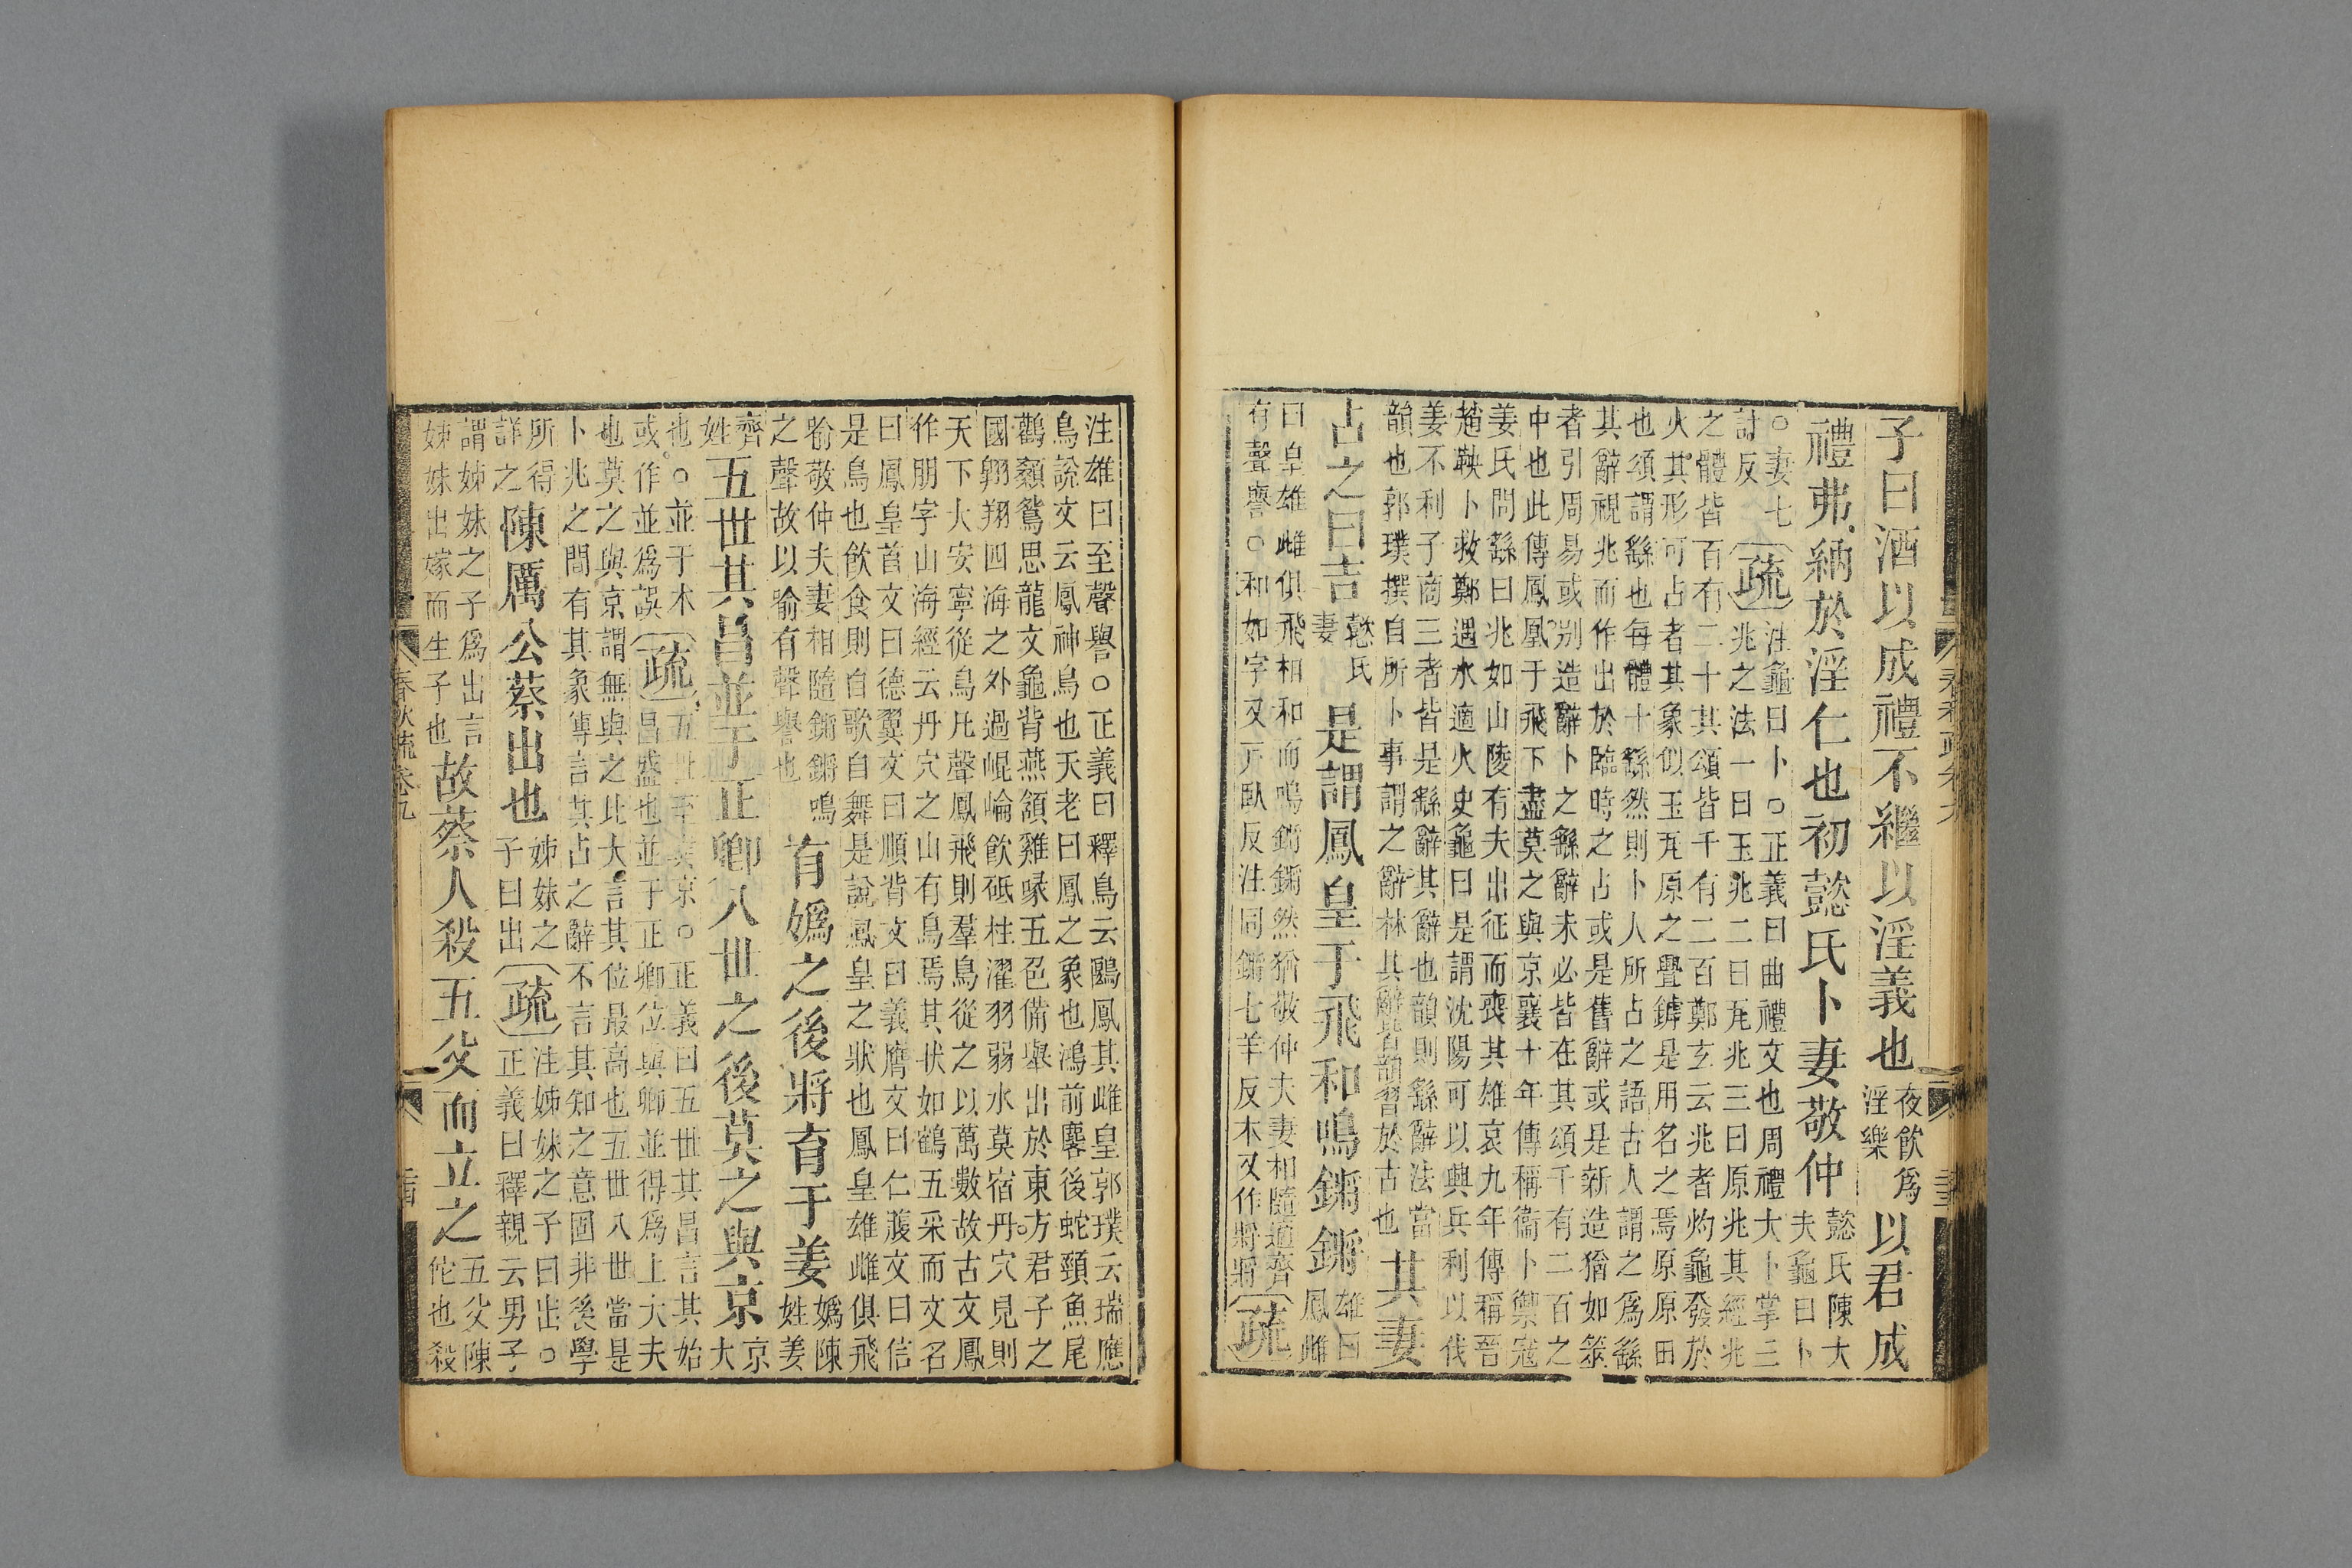 子曰酒以成禮不繼以淫義也夜飲爲淫樂以君成
禮弗納於淫仁也初懿氏卜妻敬仲懿氏陳大夫龜曰卜
○妻七計反疏注龜曰卜○正義曰曲禮文也周禮大卜掌三
兆之法一曰玉兆二曰瓦兆三曰原兆其經兆
之體皆百有二十其頌皆千有二百鄭玄云兆者灼龜發於
火其形可占者其象似玉瓦原之舋鏬是用名之焉原原田
也頌謂繇也每體十繇然則卜人所占之語古人謂之爲繇
其辭視兆而作出於臨時之占或是舊辭或是新造猶如筮
者引周易或別造辭卜之繇辭未必皆在其頌千有二百之
中也此傳鳳凰于飛下盡莫之與京襄十年傳稱衞卜禦寇
姜氏問繇曰兆如山陵有夫出征而喪其雄哀九年傳稱晉
趙鞅卜救鄭遇水適火史龜曰是謂沈陽可以興兵利以伐
姜不利子商三者皆是繇辭其辭也韻則繇辭法當
韻也郭璞撰自所卜事謂之辭林其辭皆韻習於古也其妻
占之曰吉懿氏妻是謂鳳皇于飛和鳴鏘鏘雄曰鳳雌
曰皇雄雌俱飛相和而鳴鏘鏘然猶敬仲夫妻相隨適齊
有聲譽○和如字又戶臥反注同鏘七羊反本又作將將疏
注雄曰至聲譽○正義曰釋鳥云鶠鳳其雌皇郭璞云瑞應
鳥說文云鳳神鳥也天老曰鳳之象也鴻前麐後蛇頸魚尾
鸛顙鴛思龍文龜背燕頷雞喙五色備舉出於東方君子之
國翱翔四海之外過崐崘飲砥柱濯羽弱水莫宿丹穴見則
天下大安寧從鳥凡聲鳳飛則羣鳥從之以萬數故古文鳳
作朋字山海經云丹穴之山有鳥焉其狀如鶴五采而文名
曰鳳皇首文曰德翼文曰順背文曰義膺文曰仁腹文曰信
是鳥也飲食則自歌自舞是說鳳皇之狀也鳳皇雄雌俱飛
喻敬仲夫妻相隨鏘鏘鳴
之聲故以喻有聲譽也有嬀之後將育于姜嬀陳姓姜
齊姓五世其昌並于正卿八世之後莫之與京京大
也○並于本或作並爲誤疏五世至與京○正義曰五世其昌言其始
昌盛也並于正卿位與卿並得爲上大夫
也莫之與京謂無與之比大言其位最高也五世八世當是
卜兆之間有其象傳言其占之辭不言其知之意固非後學
所得詳之陳厲公蔡出也姊妹之子曰出疏注姊妹之子曰出○
正義曰釋親云男子
謂姊妹之子爲出言
姊妹出嫁而生子也故蔡人殺五父而立之五父陳佗也殺
春秋疏卷九